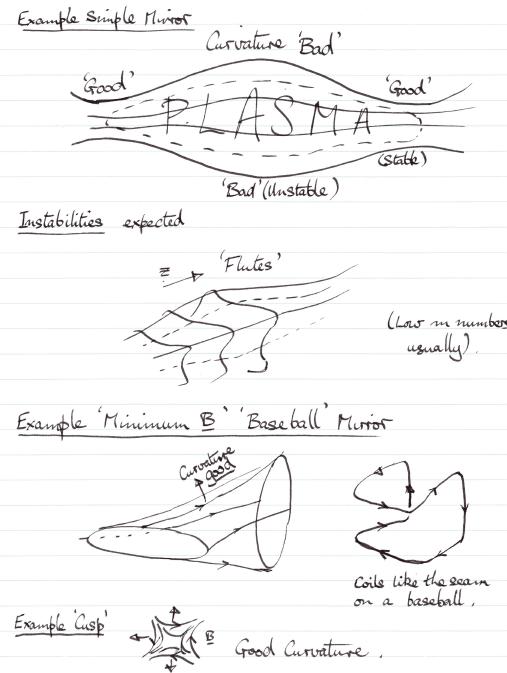 Example Simple Mirror
Curvature 'Bad'
'Good'
'Good'
PLASMA
(Stable)
'Bad' (Unstable)
Instabilities expected
z
'Flutes'
(Low m numbers
usually).
Example 'Minimum B' 'Baseball' Mirror
Curvature
good
Coils like the seam
on a baseball.
Example 'Cusp'
B
Good Curvature.